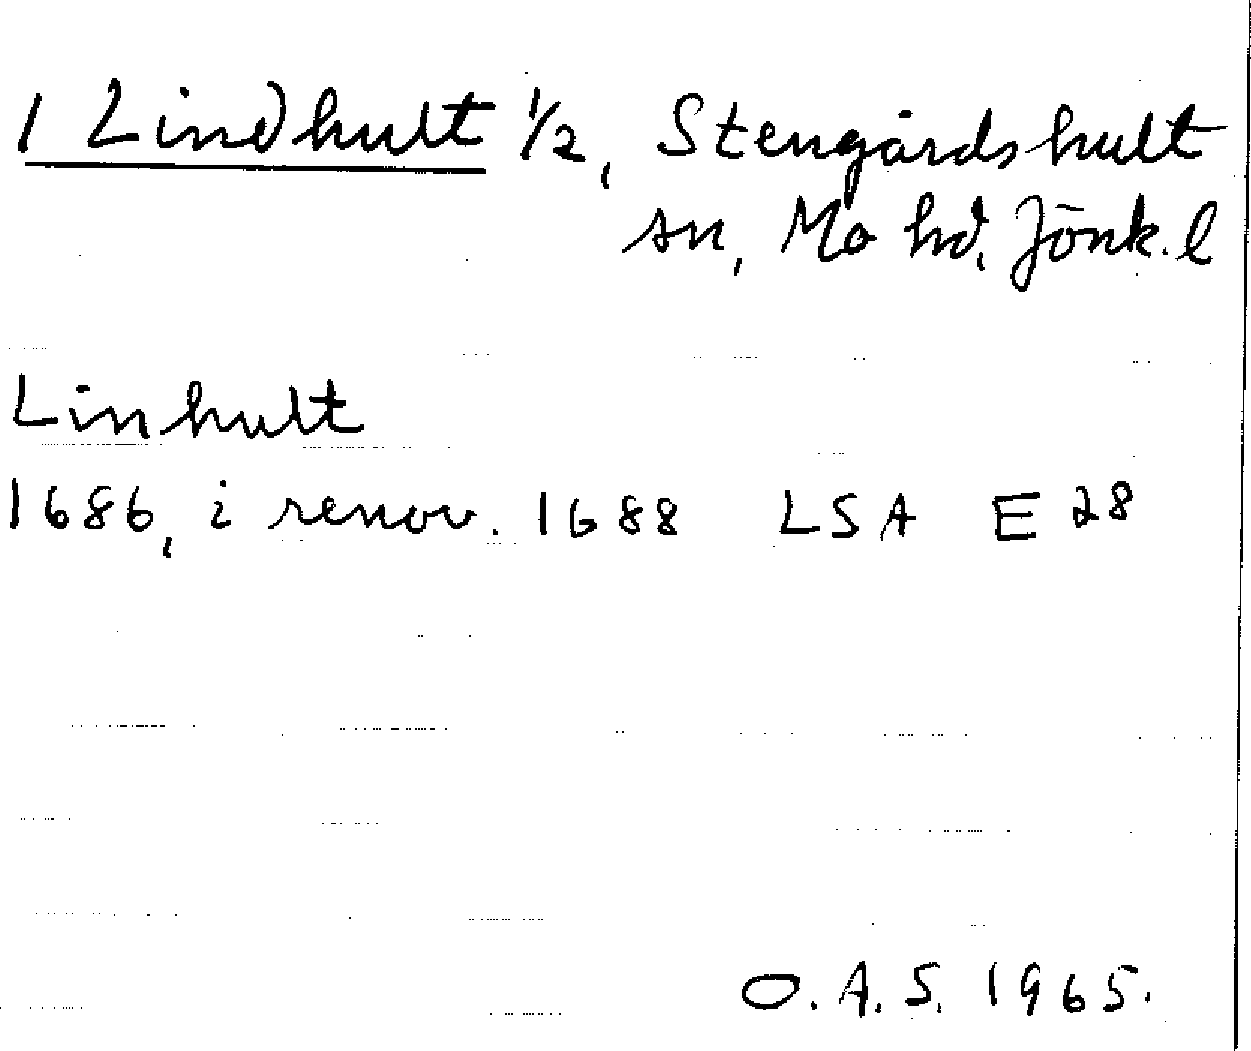 1 Lindhult 1/2, Stengårdshult
sn, Mo hd, Jönk. l
Linhult
1686, i renov. 1688 LSA E 28
O. A. S. 1965.